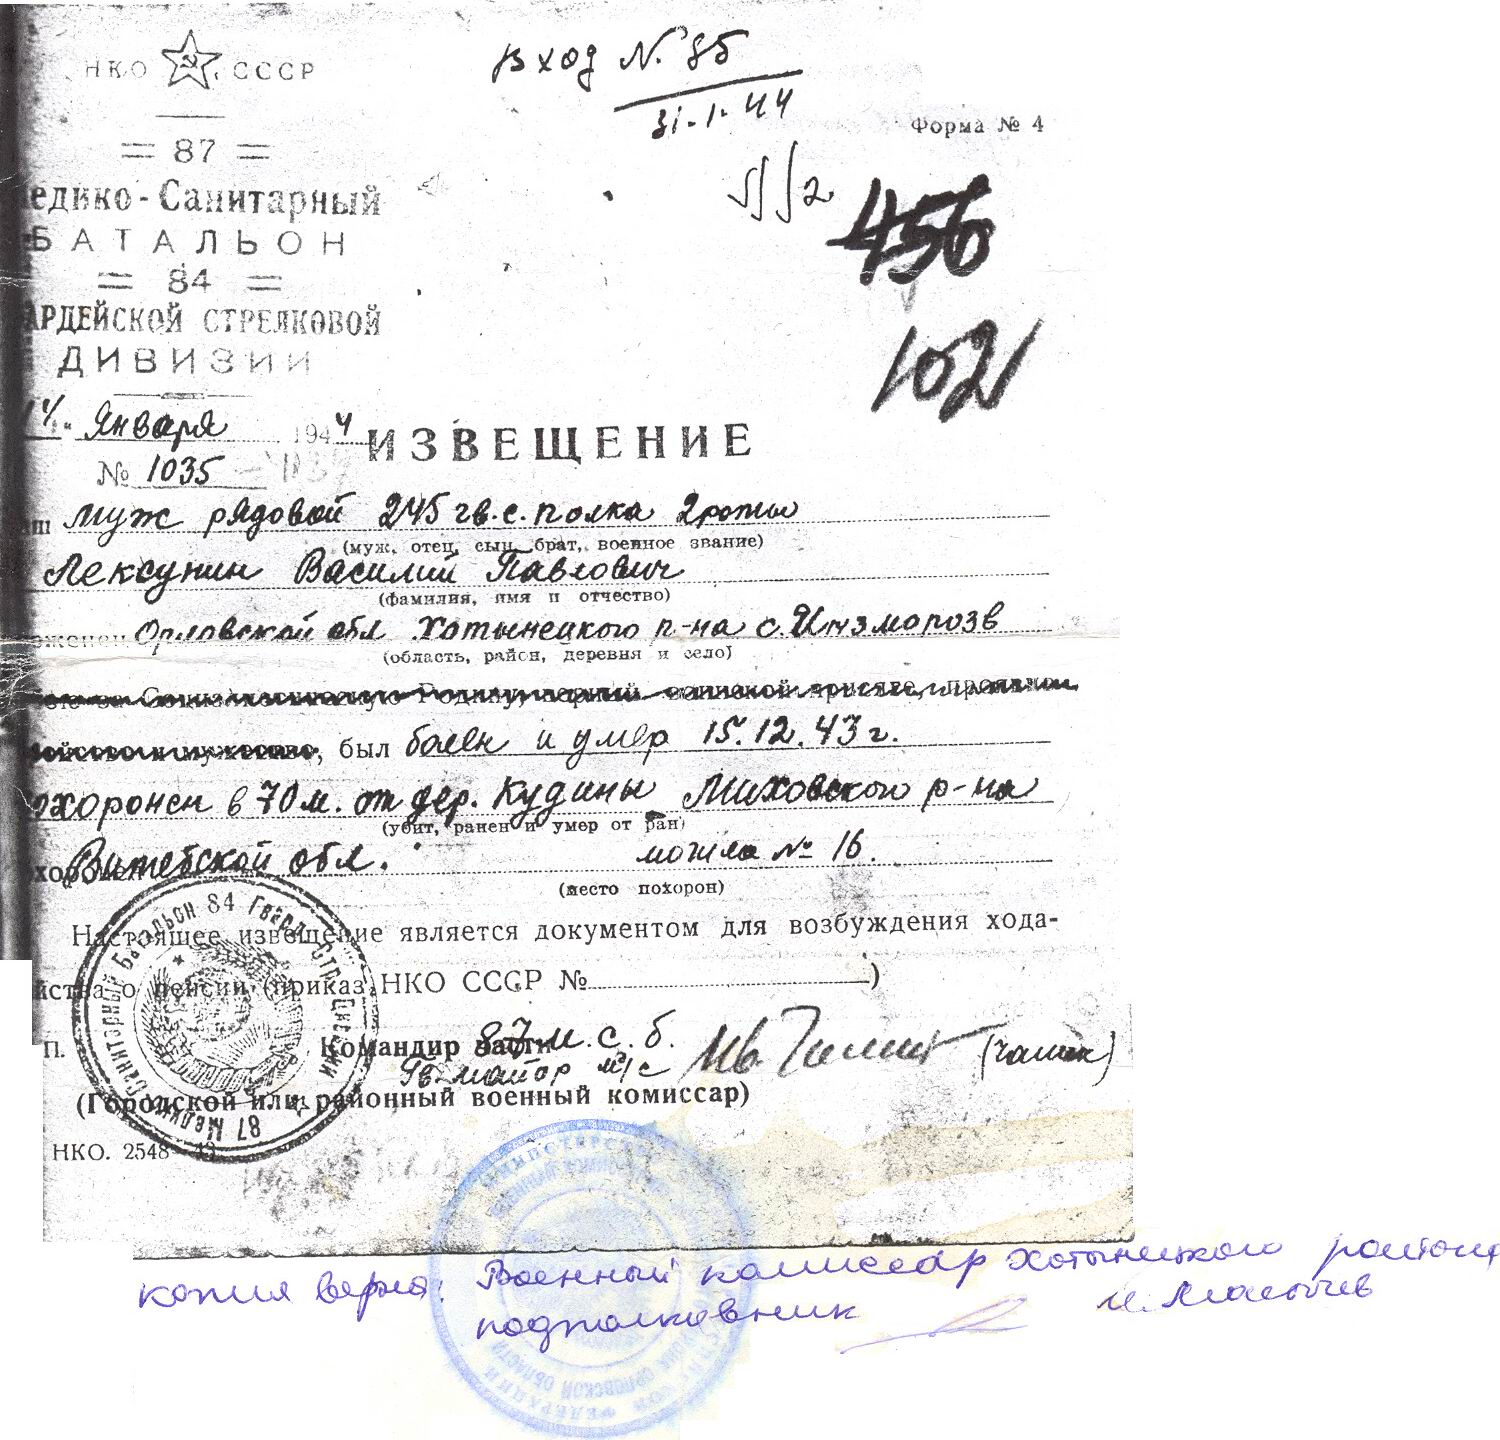 НКО СССР
Вход N. 85
31-1-44
Форма № 4
= 87 =
едико-Санитарный
БАТАЛЬОН
= 84 =
АРДЕЙСКОЙ СТРЕЛКОВОЙ
ДИВИЗИИ
456
102
14. Января 1944
ИЗВЕЩЕНИЕ
№ 1035
аш муж рядовой 245 гв. с. полка 2 роты
(муж, отец, сын, брат, военное звание)
Лексунин Василий Павлович
(фамилия, имя и отчество)
оженец Орловской обл Хотынецкого р-на с.
(область, район, деревня и село)
Социалистическую Родину, верный воинской присяге, проявив
, был болен и умер 15.12.43 г.
охоронен в 70 м. от дер. Кудины Миховского р-на
(убит, ранен и умер от ран)
Витебской обл. могила № 16.
(место похорон)
Настоящее извещение является документом для возбуждения хода-
йства о пенсии (приказ НКО СССР № )
П. Командир части 87 м. с. б.
Гв. майор м/с
(Городской или районный военный комиссар)
87 Медико Санитарный Батальон 84 Гвард. Стр. Дивизии
НКО. 2548—43
копия верна: Военный комиссар Хотынецкого района
подполковник